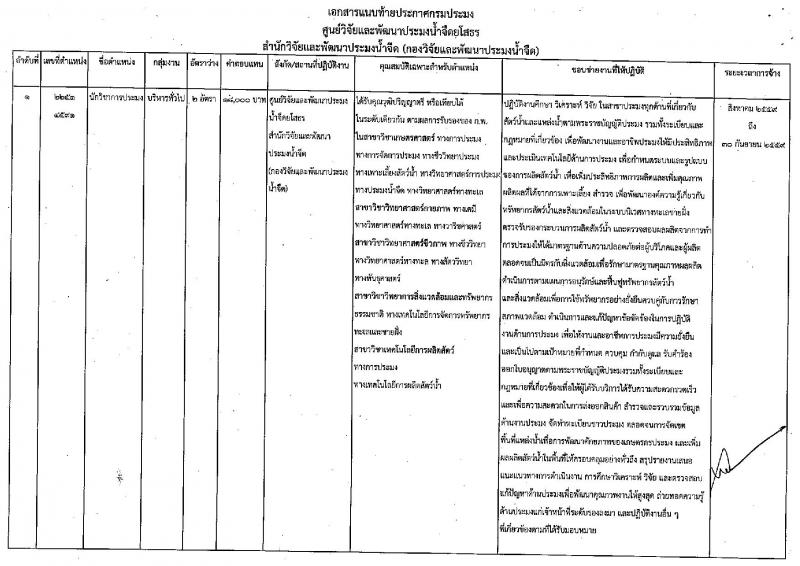 เอกสารแนบท้ายประกาศกรมประมง
ศูนย์วิจัยและพัฒนาประมงน้ำจืดยโสธร
สำนักวิจัยและพัฒนาประมงน้ำจืด (กองวิจัยและพัฒนาประมงน้ำจืด)
ลำดับที่ เลขที่ตำแหน่ง ชื่อตำแหน่ง กลุ่มงาน อัตราว่าง ค่าตอบแทน สังกัด/สถานที่ปฏิบัติงาน คุณสมบัติเฉพาะสำหรับตำแหน่ง ขอบข่ายงานที่ให้ปฏิบัติ ระยะเวลาการจ้าง
๑ ๒๒๕๓ นักวิชาการประมง บริหารทั่วไป ๒ อัตรา ๑๘,๐๐๐ บาท
๔๕๙๑
ศูนย์วิจัยและพัฒนาประมง
น้ำจืดยโสธร
สำนักวิจัยและพัฒนา
ประมงน้ำจืด
(กองวิจัยและพัฒนาประมง
น้ำจืด)
ได้รับคุณวุฒิปริญญาตรี หรือเทียบได้
ในระดับเดียวกัน ตามผลการรับรองของ ก.พ.
ในสาขาวิชาเกษตรศาสตร์ ทางการประมง
ทางการจัดการประมง ทางชีววิทยาประมง
ทางเพาะเลี้ยงสัตว์น้ำ ทางวิทยาศาสตร์การประมง
ทางประมงน้ำจืด ทางวิทยาศาสตร์ทางทะเล
สาขาวิชาวิทยาศาสตร์กายภาพ ทางเคมี
ทางวิทยาศาสตร์ทางทะเล ทางวาริชศาสตร์
สาขาวิชาวิทยาศาสตร์ชีวภาพ ทางชีววิทยา
ทางวิทยาศาสตร์ทางทะเล ทางสัตววิทยา
ทางพันธุศาสตร์
สาขาวิชาวิทยาการสิ่งแวดล้อมและทรัพยากร
ธรรมชาติ ทางเทคโนโลยีการจัดการทรัพยากร
ทะเลและชายฝั่ง
สาขาวิชาเทคโนโลยีการผลิตสัตว์
ทางการประมง
ทางเทคโนโลยีการผลิตสัตว์น้ำ
ปฏิบัติงานศึกษา วิเคราะห์ วิจัย ในสาขาประมงทุกด้านที่เกี่ยวกับ
สัตว์น้ำและแหล่งน้ำตามพระราชบัญญัติประมง รวมทั้งระเบียบและ
กฎหมายที่เกี่ยวข้อง เพื่อพัฒนางานและอาชีพประมงให้มีประสิทธิภาพ
และประเมินเทคโนโลยีด้านการประมง เพื่อกำหนดระบบและรูปแบบ
ของการผลิตสัตว์น้ำ เพื่อเพิ่มประสิทธิภาพการผลิตและเพิ่มคุณภาพ
ผลิตผลที่ได้จากการเพาะเลี้ยง สำรวจ เพื่อพัฒนาองค์ความรู้เกี่ยวกับ
ทรัพยากรสัตว์น้ำและสิ่งแวดล้อมในระบบนิเวศทางทะเลชายฝั่ง
ตรวจรับรองกระบวนการผลิตสัตว์น้ำ และตรวจสอบผลผลิตจากการทำ
การประมงให้ได้มาตรฐานด้านความปลอดภัยต่อผู้บริโภคและผู้ผลิต
ตลอดจนเป็นมิตรกับสิ่งแวดล้อมเพื่อรักษามาตรฐานคุณภาพผลผลิต
ดำเนินการตามแผนการอนุรักษ์และฟื้นฟูทรัพยากรสัตว์น้ำ
และสิ่งแวดล้อมเพื่อการใช้ทรัพยากรอย่างยั่งยืนควบคู่กับการรักษา
สภาพแวดล้อม ดำเนินการและแก้ปัญหาข้อขัดข้องในการปฏิบัติ
งานด้านการประมง เพื่อให้งานและอาชีพการประมงมีความยั่งยืน
และเป็นไปตามเป้าหมายที่กำหนด ควบคุม กำกับดูแล รับคำร้อง
ออกใบอนุญาตตามพระราชบัญญัติประมงรวมทั้งระเบียบและ
กฎหมายที่เกี่ยวข้องเพื่อให้ผู้ได้รับบริการได้รับความสะดวกรวดเร็ว
และเพื่อความสะดวกในการส่งออกสินค้า สำรวจและรวบรวมข้อมูล
ด้านงานประมง จัดทำทะเบียนชาวประมง ตลอดจนการจัดเขต
พื้นที่แหล่งน้ำเพื่อการพัฒนาศักยภาพของเกษตรกรประมง และเพิ่ม
ผลผลิตสัตว์น้ำในพื้นที่ให้ครอบคลุมอย่างทั่วถึง สรุปรายงานเสนอ
แนะแนวทางการดำเนินงาน การศึกษาวิเคราะห์ วิจัย และตรวจสอบ
แก้ปัญหาด้านประมงเพื่อพัฒนาคุณภาพงานให้สูงสุด ถ่ายทอดความรู้
ด้านประมงแก่เจ้าหน้าที่ระดับรองลงมา และปฏิบัติงานอื่น ๆ
ที่เกี่ยวข้องตามที่ได้รับมอบหมาย
สิงหาคม ๒๕๕๙
ถึง
๓๐ กันยายน ๒๕๕๙